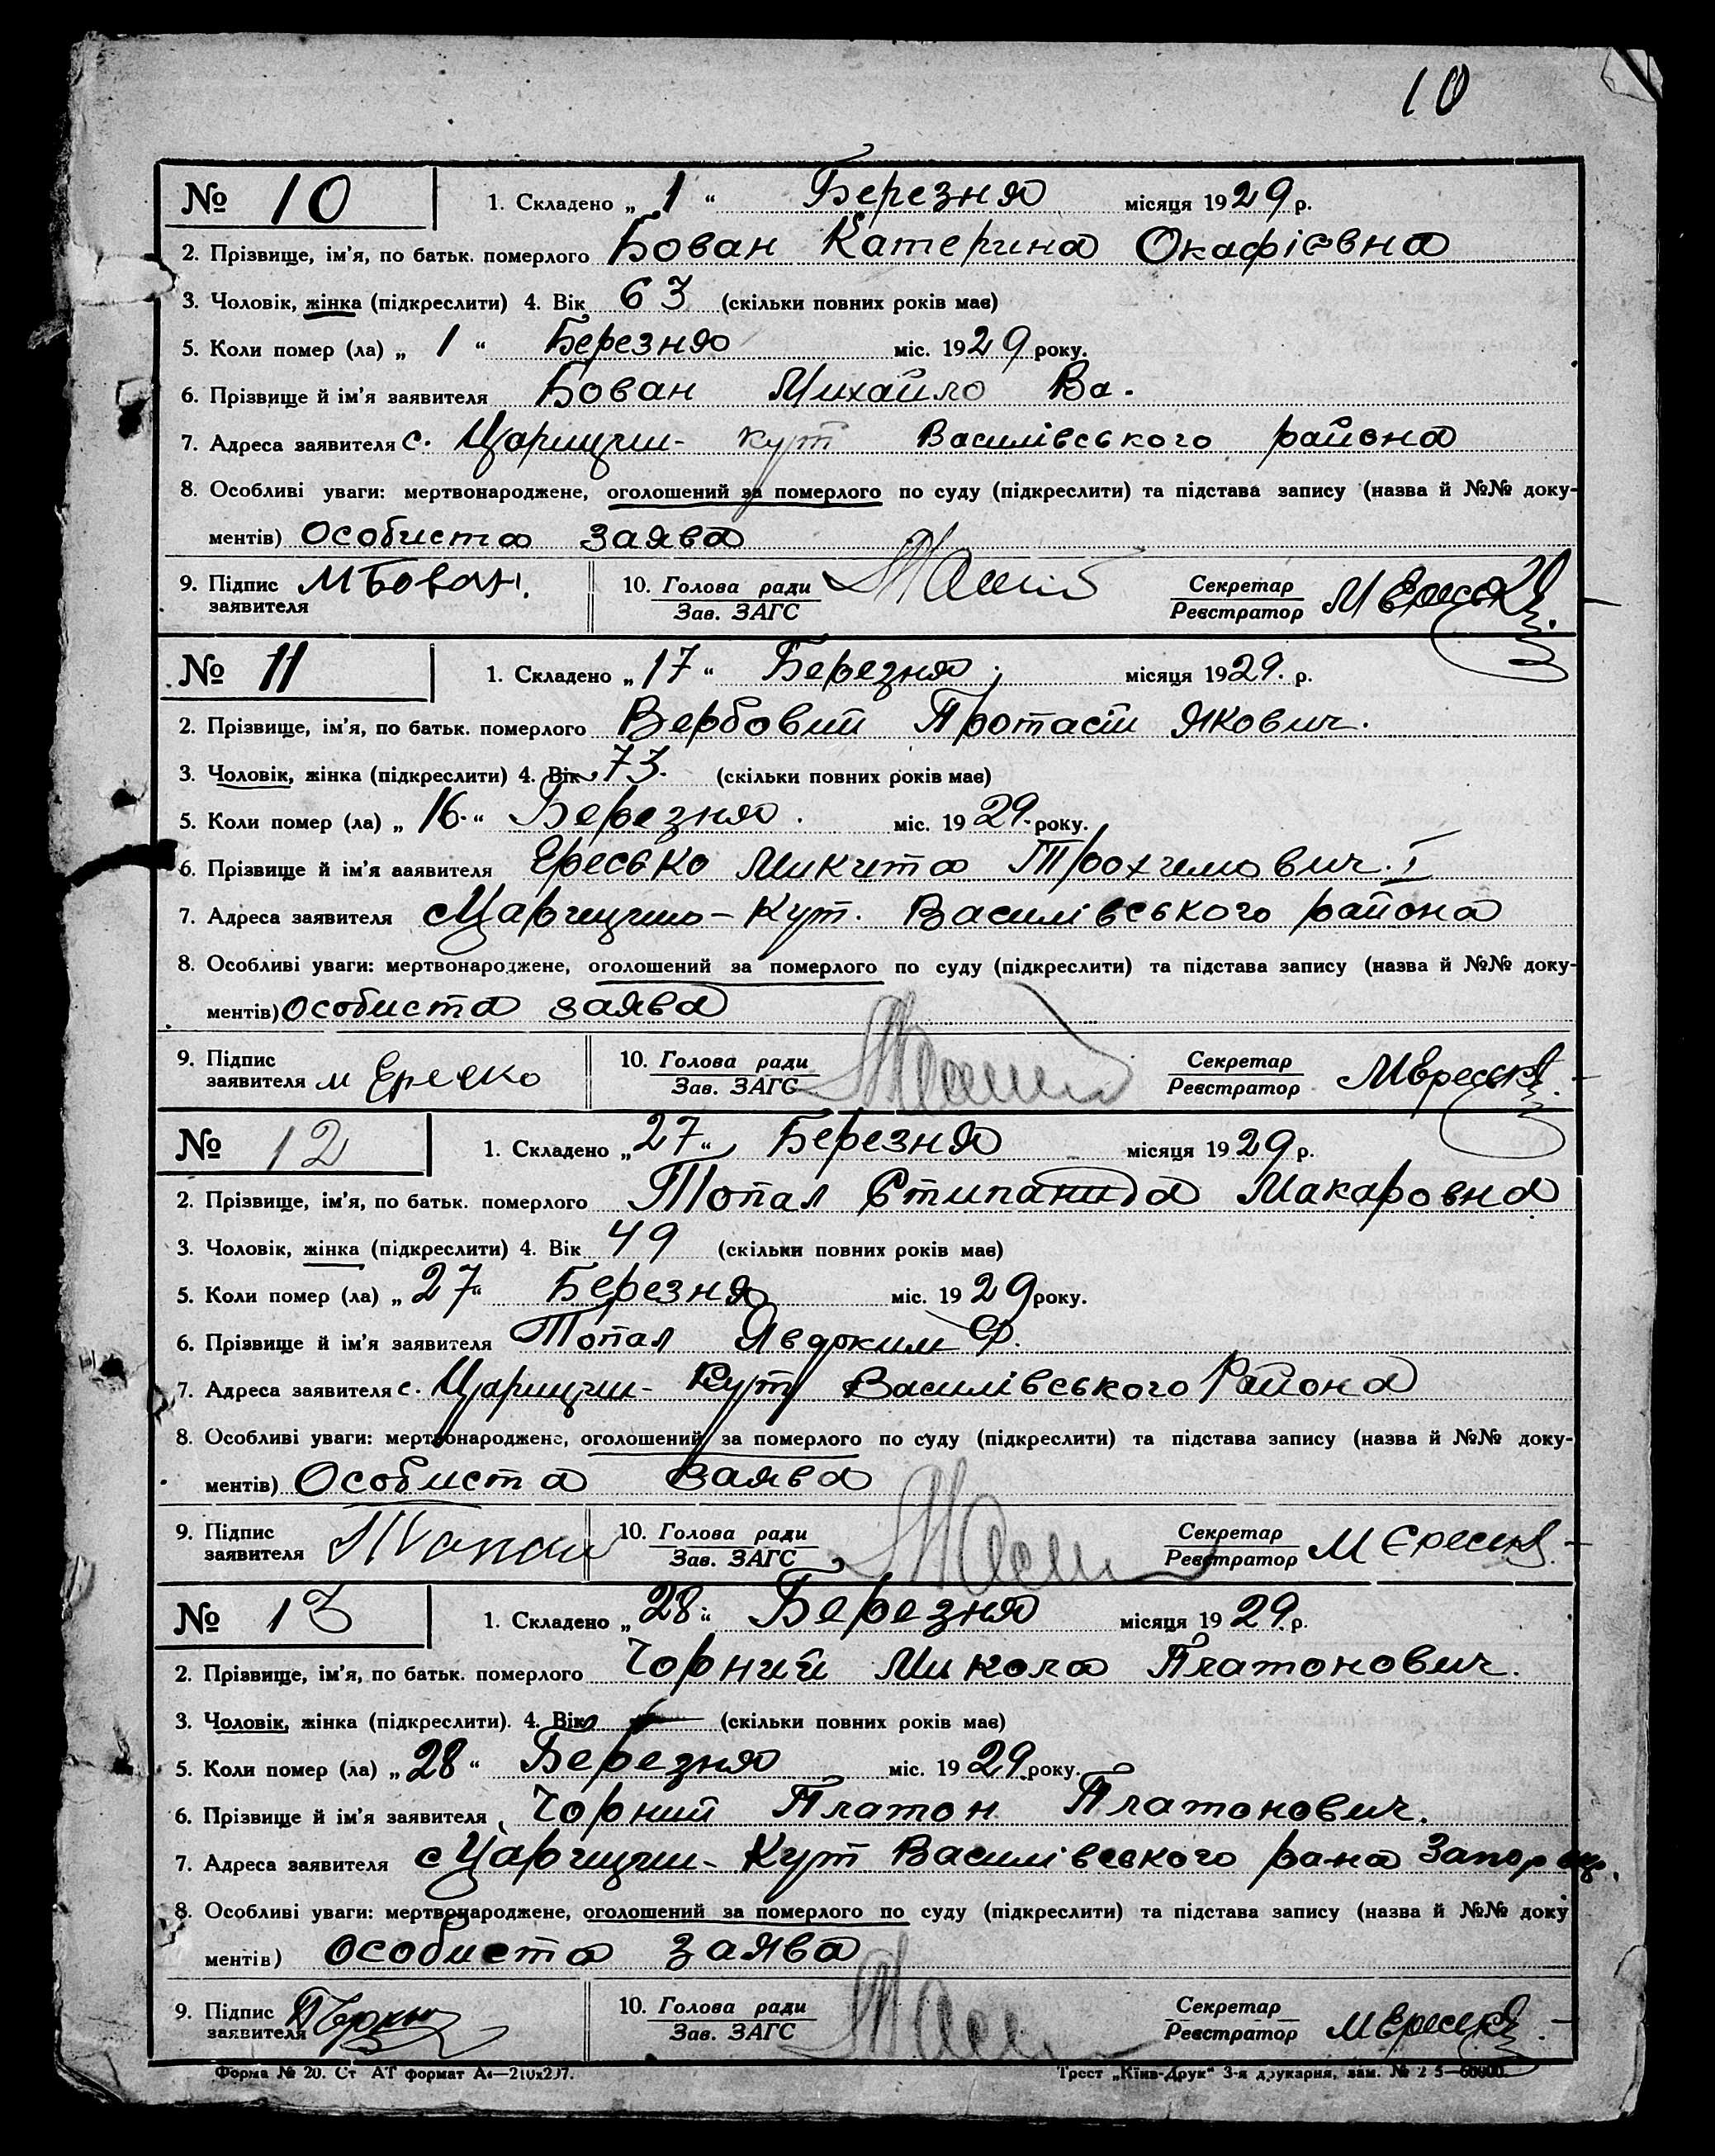 10
№ 10 1. Складено „ 1 “ Березня місяця 1929 р.
2. Прізвище, ім'я, по батьк. померлого Бован Катерина Окафієвна
3. Чоловік, жінка (підкреслити) 4. Вік 63 (скільки повних років має)
5. Коли помер (ла) „ 1 “ Березня міс. 1929 року.
6. Прізвище й ім'я заявителя Бован Михайло Ва.
7. Адреса заявителя с. Царицин- кут Василівського района
8. Особливі уваги: мертвонароджене, оголошений за померлого по суду (підкреслити) та підстава запису (назва й №№ доку-
ментів) Особиста заява
9. Підпис заявителя МБован. 10. Голова ради Секретар
Зав. ЗАГС Реєстратор
№ 11 1. Складено „ 17 “ Березня місяця 1929. р.
2. Прізвище, ім'я, по батьк. померлого Вербовий Протасій Якович.
3. Чоловік, жінка (підкреслити) 4. Вік 73. (скільки повних років має)
5. Коли помер (ла) „ 16. “ Березня. міс. 1929. року.
6. Прізвище й ім'я заявителя Ересько Микита Трохимович. I
7. Адреса заявителя с Царицино- Кут. Василівського района
8. Особливі уваги: мертвонароджене, оголошений за померлого по суду (підкреслити) та підстава запису (назва й №№ доку-
ментів) Особиста заява
9. Підпис заявителя м Еречко 10. Голова ради Секретар
Зав. ЗАГС Реєстратор МЕресько
№ 12 1. Складено „ 27 “ Березня місяця 1929 р.
2. Прізвище, ім'я, по батьк. померлого Топал Стипанида Макаровна
3. Чоловік, жінка (підкреслити) 4. Вік 49 (скільки повних років має)
5. Коли помер (ла) „ 27 “ Березня міс. 1929 року.
6. Прізвище й ім'я заявителя Топал Явдоким Ф.
7. Адреса заявителя с. Царицин- Кут Василівського Района
8. Особливі уваги: мертвонароджене, оголошений за померлого по суду (підкреслити) та підстава запису (назва й №№ доку-
ментів) Особиста Заява
9. Підпис заявителя 10. Голова ради Секретар
Зав. ЗАГС Реєстратор М Єресько
№ 13 1. Складено „ 28 “ Березня місяця 1929. р.
2. Прізвище, ім'я, по батьк. померлого Чорний Микола Платонович.
3. Чоловік, жінка (підкреслити). 4. Вік (скільки повних років має)
5. Коли помер (ла) „ 28 “ Березня міс. 1929 року.
6. Прізвище й ім'я заявителя Чорний Платон Платонович.
7. Адреса заявителя с Царицин- Кут Василівського рана
8. Особливі уваги: мертвонароджене, оголошений за померлого по суду (підкреслити) та підстава запису (назва й №№ доку
ментів) особиста заява
9. Підпис заявителя 10. Голова ради Секретар
Зав. ЗАГС Реєстратор МЕресько
Форма № 20. Ст АТ формат А4—210x297. Трест „Київ-Друк“ 3-я друкарня, зам. №